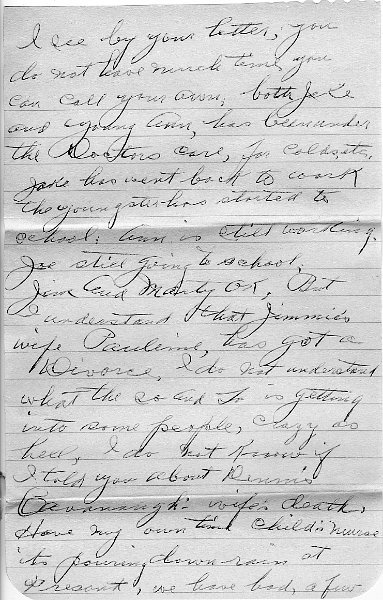 I see by your letter, you
do not have much time you
can call your own, both Jake
and young Ann, has been under
the Doctors care, for Colds etc.
Jake has went back to work
the youngster has started to
school; Ann is still working.
Joe still going to school.
Jim and Marty OK, But
I understand that Jimmie's
wife Pauline, has got a
Divorce, I do not understand
what the so and so is getting
into some people, crazy as
hell, I do not know if
I told you about Dennis
Cavanaugh wife's death,
Have my own time Child's Nurse
its pouring down rain at
Present, we have had, a few